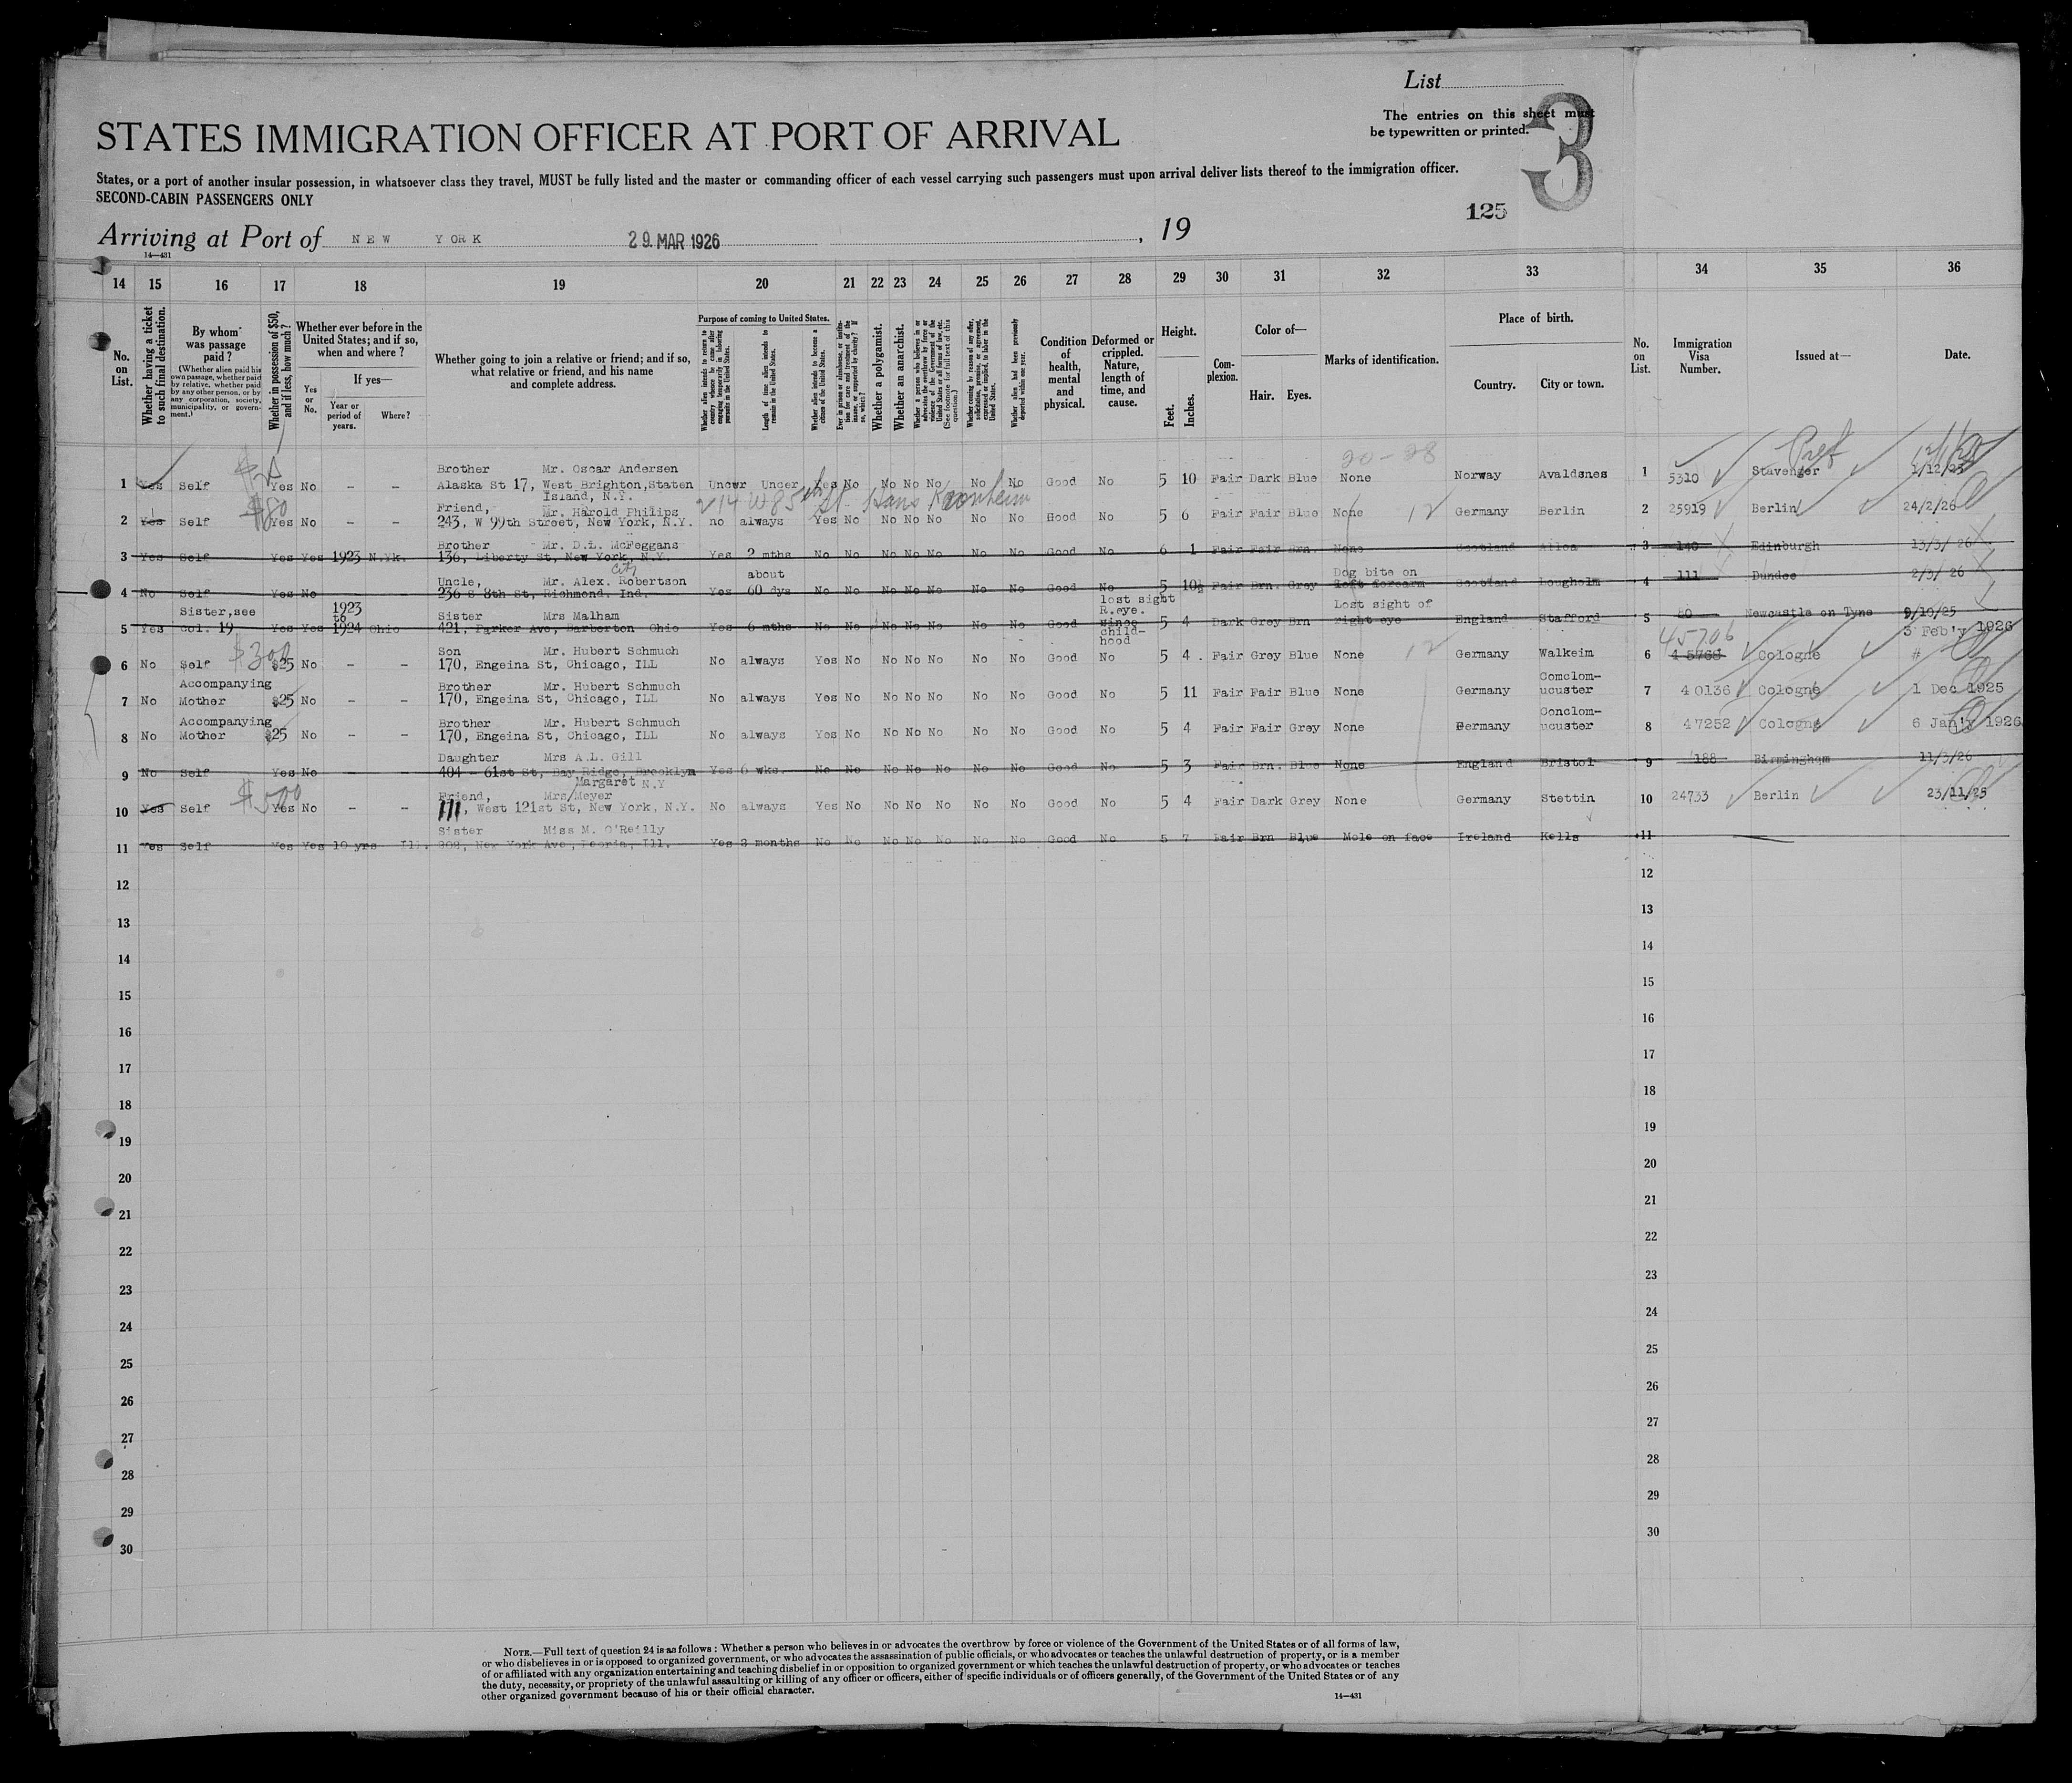 List
The entries on this sheet must
be typewritten or printed.
3
STATES IMMIGRATION OFFICER AT PORT OF ARRIVAL
States, or a port of another insular possession, in whatsoever class they travel, MUST be fully listed and the master or commanding officer of each vessel carrying such passengers must upon arrival deliver lists thereof to the immigration officer.
SECOND-CABIN PASSENGERS ONLY
125
Arriving at Port of NEW YORK 29 MAR 1926 , 19
14—431
14 15 16 17 18 19 20 21 22 23 24 25 26 27 28 29 30 31 32 33 34 35 36
No. on List.
Whether having a ticket to such final destination.
By whom was passage paid?
(Whether alien paid his own passage, whether paid by relative, whether paid by any other person, or by any corporation, society, municipality, or government.)
Whether in possession of $50, and if less, how much?
Whether ever before in the United States; and if so, when and where?
Yes or No.
If yes—
Year or period of years.
Where?
Whether going to join a relative or friend; and if so, what relative or friend, and his name and complete address.
Purpose of coming to United States.
Whether alien intends to return to country whence he came after engaging temporarily in laboring pursuits in the United States.
Length of time alien intends to remain in the United States.
Whether alien intends to become a citizen of the United States.
Ever in prison or almshouse, or institution for care and treatment of the insane, or supported by charity? If so, which?
Whether a polygamist.
Whether an anarchist.
Whether a person who believes in or advocates the overthrow by force or violence of the Government of the United States or all forms of law, etc. (See footnote for full text of this question.)
Whether coming by reason of any offer, solicitation, promise, or agreement, expressed or implied, to labor in the United States.
Whether alien had been previously deported within one year.
Condition of health, mental and physical.
Deformed or crippled. Nature, length of time, and cause.
Height.
Feet. Inches.
Complexion.
Color of—
Hair. Eyes.
Marks of identification.
Place of birth.
Country. City or town.
No. on List.
Immigration Visa Number.
Issued at—
Date.
20-28
Brother Mr. Oscar Andersen
1 Yes Self Yes No - - Alaska St 17, West Brighton, Staten Uncer Uncer Yes No No No No No No Good No 5 10 Fair Dark Blue None Norway Avaldsnes 1 5310 Stavanger 1/12/25
Island, N.Y.
214 W 85th St. Hans
$80
Friend, Mr. Harold Philips
2 Yes Self Yes No - - 243, W 99th Street, New York, N.Y. no always Yes No No No No No No Good No 5 6 Fair Fair Blue None 12 Germany Berlin 2 25919 Berlin 24/2/26
Brother Mr. D.L. McFeggans
3 Yes Self Yes Yes 1923 N.Yk. 136, Liberty St, New York, N.Y. Yes 2 mths No No No No No No No Good No 6 1 Fair Fair Brn. None Scotland Alloa 3 140 Edinburgh 13/3/26
City
Uncle, Mr. Alex. Robertson about Dog bite on
4 No Self Yes No 236 S 8th St, Richmond. Ind. Yes 60 dys No No No No No No No Good No 5 10½ Fair Brn. Grey left forearm Scotland Lougholm 4 111 Dundee 2/3/26
Sister, see 1923 to Sister Mrs Malham lost sight R.eye. Lost sight of
5 Yes col. 19 Yes Yes 1924 Ohio 421, Parker Ave, Barberton Ohio Yes 6 mths No No No No No No No Good since child-hood 5 4 Dark Grey Brn right eye England Stafford 5 80 Newcastle on Tyne 9/10/25
$300 45706 3 Feb'y 1926
Son Mr. Hubert Schmuch
6 No Self $25 No - - 170, Engeina St, Chicago, ILL No always Yes No No No No No No Good No 5 4 Fair Grey Blue None 12 Germany Walkeim 6 45768 Cologne #
Accompanying Brother Mr. Hubert Schmuch Comclom-
7 No Mother $25 No - - 170, Engeina St, Chicago, ILL No always Yes No No No No No No Good No 5 11 Fair Fair Blue None Germany ucuster 7 40136 Cologne 1 Dec 1925
Accompanying Brother Mr. Hubert Schmuch Conclom-
8 No Mother $25 No - - 170, Engeina St, Chicago, ILL No always Yes No No No No No No Good No 5 4 Fair Fair Grey None Germany ucuster 8 47252 Cologne 6 Jan'y 1926
Daughter Mrs A.L. Gill
9 No Self Yes No 404 - 61st St, Bay Ridge, Brooklyn Yes 6 wks. No No No No No No No Good No 5 3 Fair Brn. Blue None England Bristol 9 188 Birmingham 11/3/26
N.Y
$500
Margaret
Friend, Mrs/Meyer
10 Yes Self Yes No - - 111, West 121st St, New York, N.Y. No always Yes No No No No No No Good No 5 4 Fair Dark Grey None Germany Stettin 10 24733 Berlin 23/11/25
Sister Miss M. O'Reilly
11 Yes Self Yes Yes 10 yrs Ill. 808, New York Ave, Peoria, Ill. Yes 3 months No No No No No No No Good No 5 7 Fair Brn Blue Mole on face Ireland Kells 11
12 12
13 13
14 14
15 15
16 16
17 17
18 18
19 19
20 20
21 21
22 22
23 23
24 24
25 25
26 26
27 27
28 28
29 29
30 30
NOTE.—Full text of question 24 is as follows: Whether a person who believes in or advocates the overthrow by force or violence of the Government of the United States or of all forms of law,
or who disbelieves in or is opposed to organized government, or who advocates the assassination of public officials, or who advocates or teaches the unlawful destruction of property, or is a member
of or affiliated with any organization entertaining and teaching disbelief in or opposition to organized government or which teaches the unlawful destruction of property, or who advocates or teaches
the duty, necessity, or propriety of the unlawful assaulting or killing of any officer or officers, either of specific individuals or of officers generally, of the Government of the United States or of any
other organized government because of his or their official character.
14—431